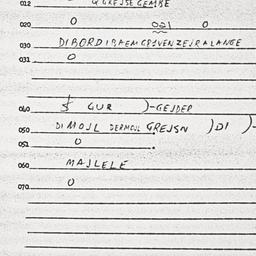 012 Q GREJSE GEMBE
020 0 021 0
030 DIBORDIBAEMCPJVENZEJRALANGE
031 0
040 GUR )-GEJDER
050 DIMOJL DERMOJL GREJSN )DI )-
051 0
060 MAJLELE
070 0